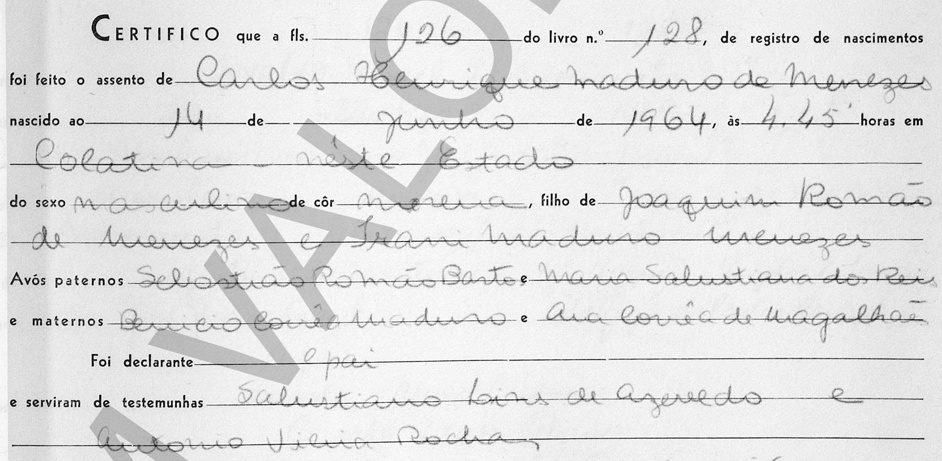 CERTIFICO que a fls. 126 do livro n.º 128, de registro de nascimentos
foi feito o assento de Carlos Henrique Maduro de Menezes
nascido ao 14 de Junho de 1964, às 4.45 horas em
Colatina - nêste Estado
do sexo masculino de côr morena, filho de Joaquim Romão
de Menezes e Irani Maduro Menezes
Avós paternos Sebastião Romão Bastos e Maria Salustiana dos Reis
e maternos Benicio Corrêa Maduro e Ana Corrêa de Magalhães
Foi declarante o pai
e serviram de testemunhas Salustiano Lins de Azevedo e
Antonio Vieira Rocha,
VALO